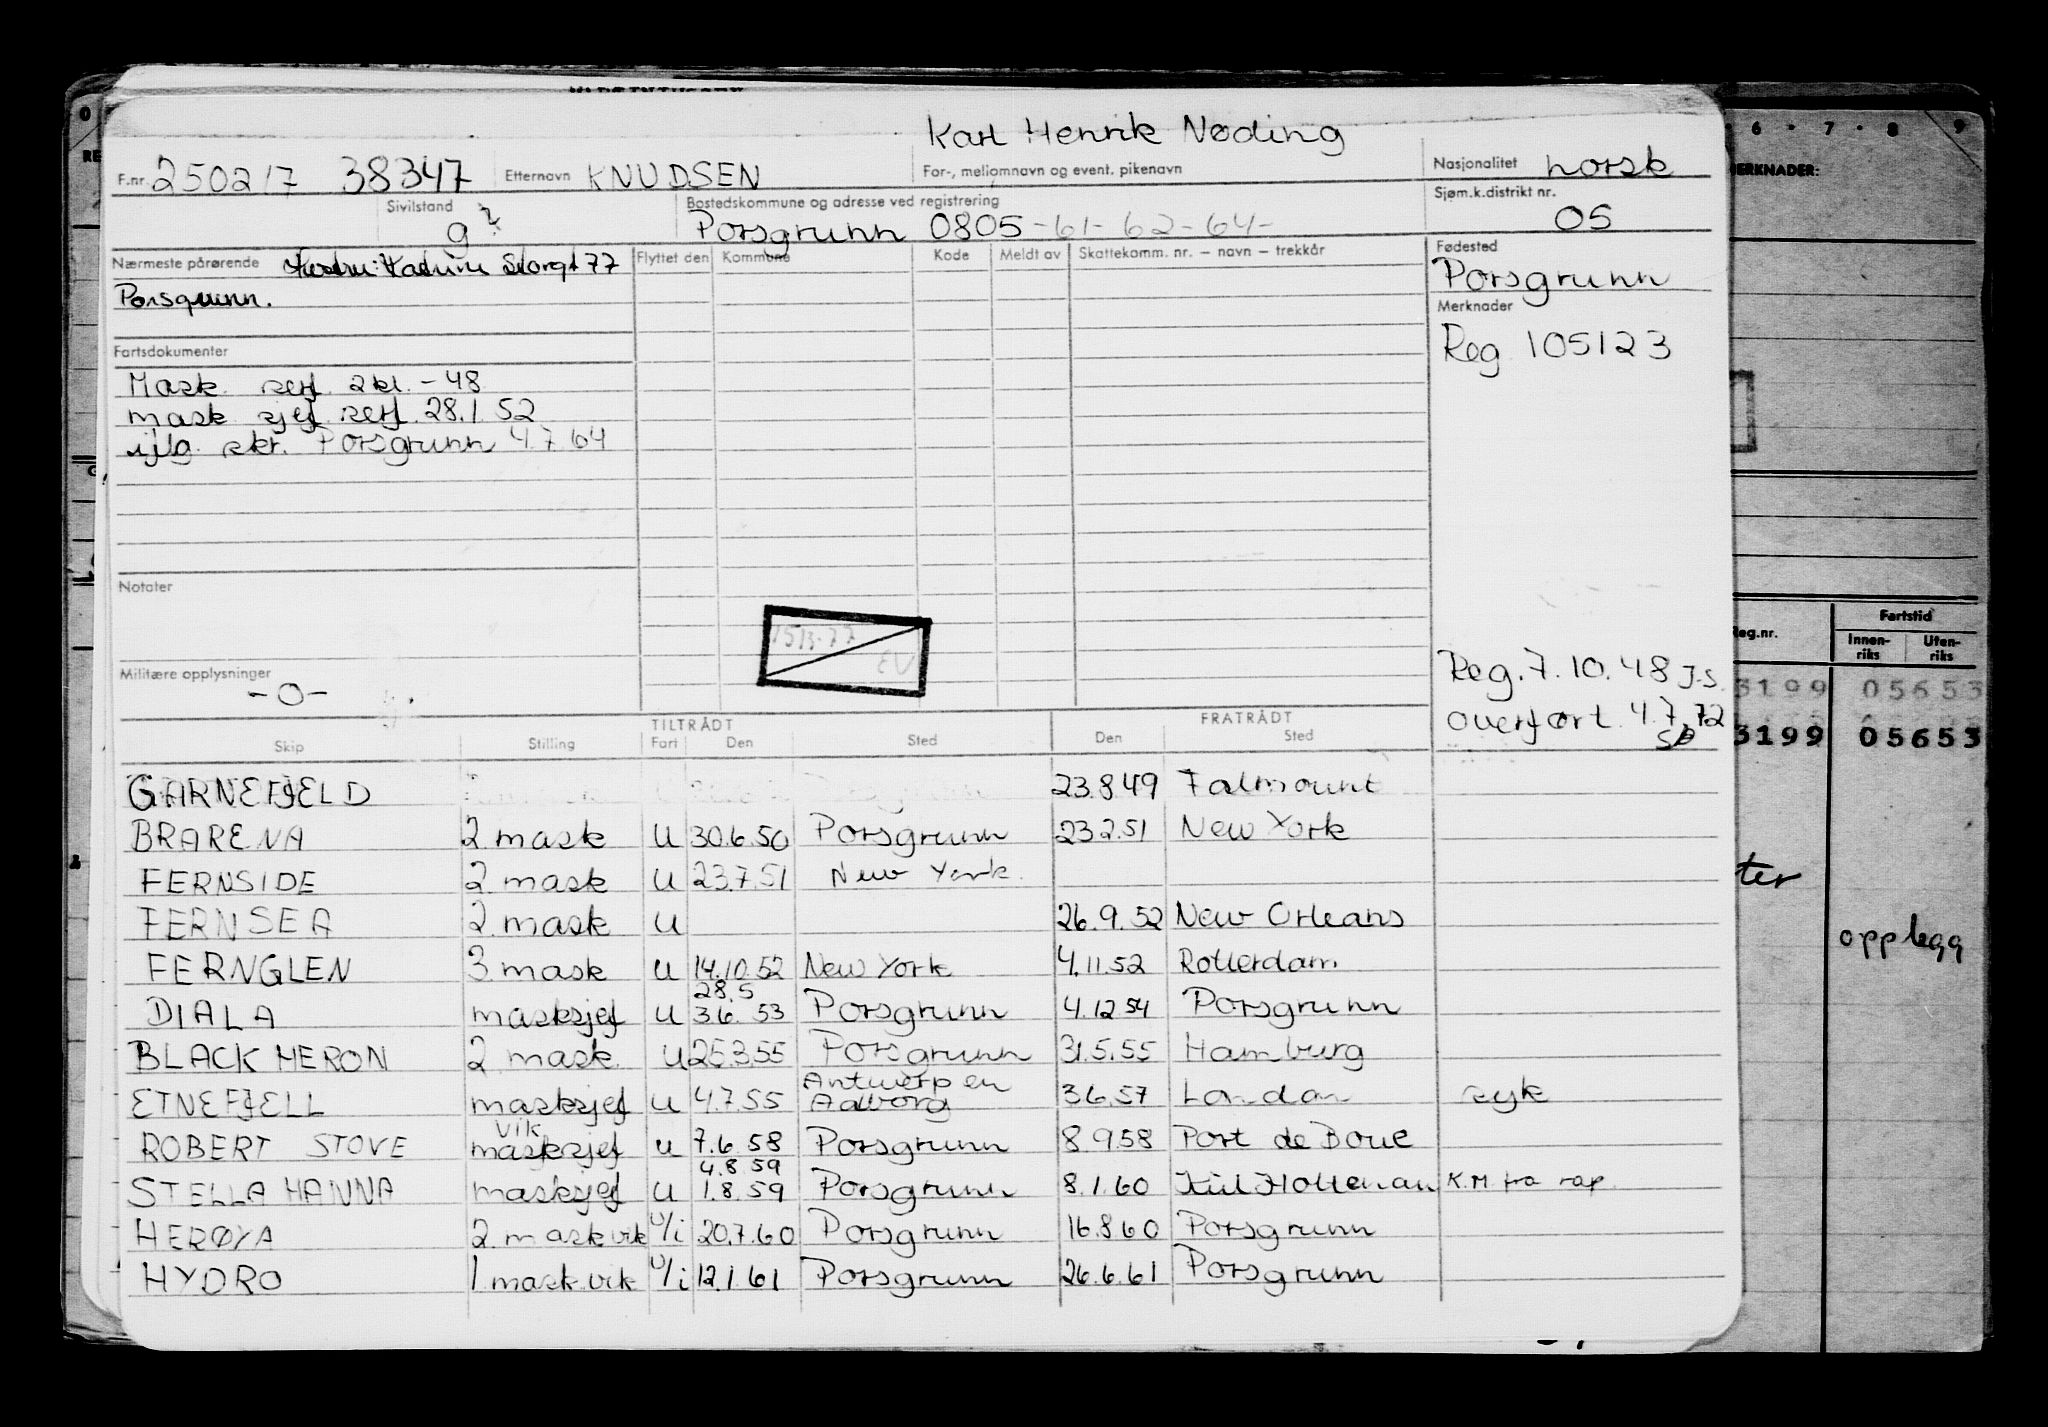 Karl Henrik Nøding
F.nr. 250217 38347 Etternavn KNUDSEN For-, mellomnavn og event. pikenavn Nasjonalitet norsk
Sivilstand g? Bostedskommune og adresse ved registrering Porsgrunn 0805-61-62-64- Sjøm.k.distrikt nr. 05
Nærmeste pårørende Storgt 77 Flyttet den Kommune Kode Meldt av Skattekomm. nr. – navn – trekkår Fødested
Porsgrunn. Porsgrunn
Merknader
Reg 105123
Fartsdokumenter
Mask. serf. 2kl. -48
mask sjef serf. 28.1.52
sjlg. skr. Porsgrunn 4.7.64
Notater
1513-77
EV
Militære opplysninger
-0-
Reg. 7.10.48 J.S.
overført 4.7.72
SØ
TILTRÅDT FRATRÅDT
Skip Stilling Fart Den Sted Den Sted
GARNEFJELD 23.8.49 Falmount
BRARENA 2 mask U 30.6.50 Porsgrunn 23.2.51 New York
FERNSIDE 2. mask U 23.7.51 New York.
FERNSEA 2. mask U 26.9.52 New Orleans
FERNGLEN 3. mask U 14.10.52 New York 4.11.52 Rotterdam
28.5
DIALA masksjef U 3.6.53 Porsgrunn 4.12.54 Porsgrunn
BLACK HERON 2 mask. U 25.3.55 Porsgrunn 31.5.55 Hamburg
Antwerpen
ETNEFJELL masksjef U 4.7.55 Aalborg 3.6.57 London syk
vik
ROBERT STOVE masksjef U 7.6.58 Porsgrunn 8.9.58 Port de Bouc
4.8.59
STELLA HANNA masksjef U 1.8.59 Porsgrunn 8.1.60 Kiel Holtenau K.M fra rap.
HERØYA 2. mask vik U/i 20.7.60 Porsgrunn 16.8.60 Porsgrunn
HYDRO 1 mask. vik U/i 12.1.61 Porsgrunn 26.6.61 Porsgrunn
6 · 7 · 8 · 9
MERKNADER:
Reg.nr. Fartstid
Innen-riks Uten-riks
3199 05653
3199 05653
ter
opplegg